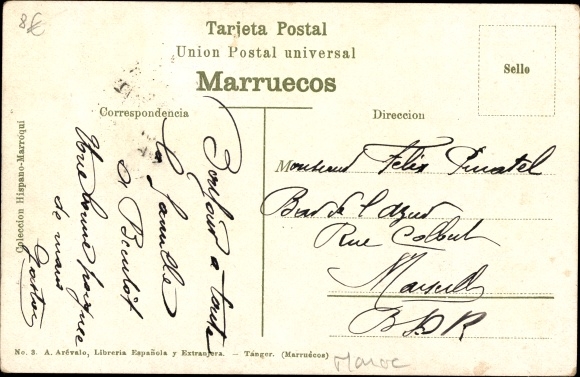 8€
Tarjeta Postal
Union Postal universal
Marruecos
Sello
Correspondencia
Direccion
Coleccion Hispano-Marroqui
Bonjour a toute
la famille
et Bientôt
Une bonne poignee
de main
Gaston
Monsieur Felix
Bar de l'Azur
Rue Colbert
Marseille
BDR
No. 3. A. Arévalo, Libreria Española y Extranjera. – Tánger. (Marruecos)
Maroc